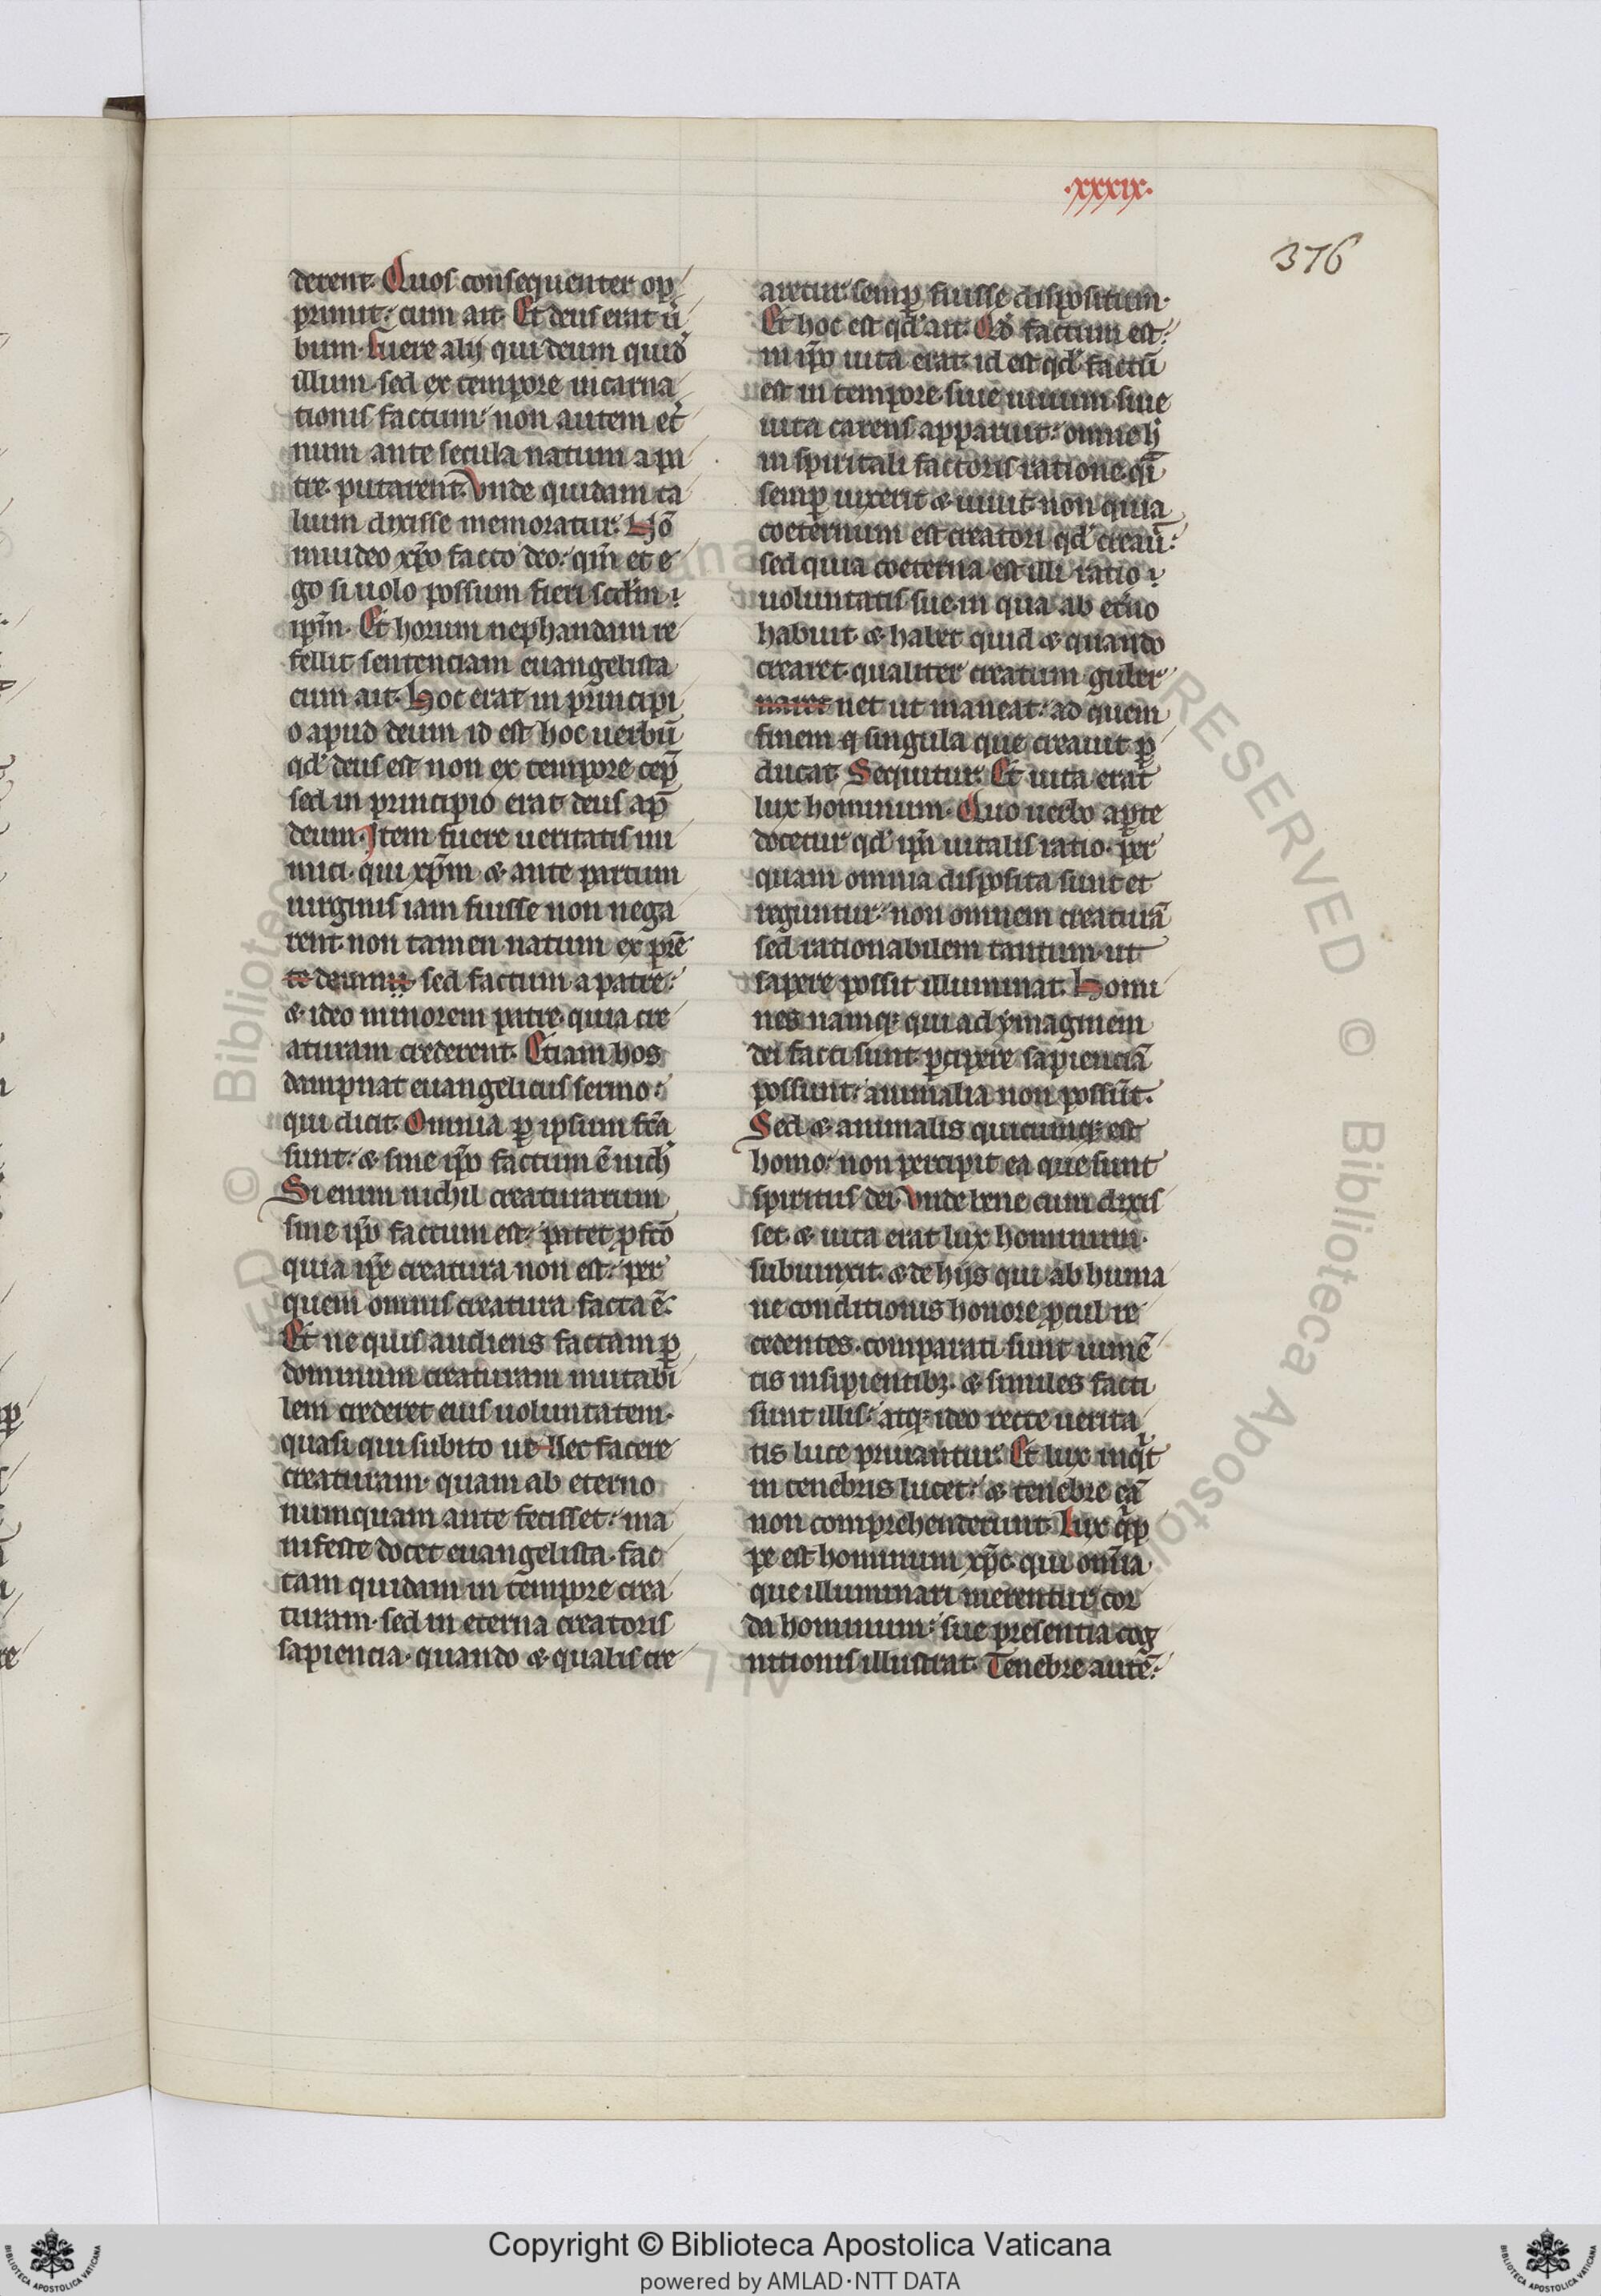 .xxxix.
376
derent. Quos consequenter op
primit: cum ait. Et deus erat ū
bum. Fuere alij qui deum quid̉
illum. sed ex tempore incarna
tionis factum: non autem et̉
num ante secula natum a pa
tre putarent. Vnde quidam ta
lium dixisse memoratur. Nō
inuideo xp̄o facto deo: qm̄ et e
go si uolo possum fieri scd̄m:
ip̄m. Et horum nephandam re
fellit sentenciam euangelista
cum ait. Hoc erat in principi
o apud deum id est hoc uerbū
qd̉ deus est non ex tempore cep̄
sed in principio erat deus ap̄
deum. Item fuere ueritatis ini
mici. qui xp̄m & ante partum
uirginis iam fuisse non nega
rent. non tamen natum ex pr̄e
te deumu sed factum a patre:
& ideo minorem patre quia cre
aturam crederent. Etiam hos
dampnat euangelicus sermo:
qui dicit. Omnia ꝑ ipsum fc̄a
sunt: & sine ip̄o factum ē nich̉
Si enim nichil creaturarum
sine ip̄o factum est: patet ꝓfcō
quia ip̄e creatura non est: per
quem omnis creatura facta ē.
Et ne quis audiens factam ꝑ
dominum creaturam mutabi
lem crederet eius uoluntatem.
quasi qui subito uellet facere
creaturam. quam ab eterno
numquam ante fecisset: ma
nifeste docet euangelista. fac
tam quidam in tempore crea
turam. sed in eterna creatoris
sapiencia. quando & qualis cre
aretur semꝑ fuisse dispositum.
Et hoc est qd̉ ait. Qd̉ factum est:
in ip̄o uita erat. id est qd̉ factū
est in tempore siue uiuum siue
uita carens apparuit: omne h̉
in spiritali factoris ratione. q̄i
semꝑ uixerit & uiuit. non quia
coeternum est creatori qd̉ creau̅:
sed quia coeterna est illi ratio:
uoluntatis sue. in qua ab et̉no
habuit & habet quid & quando
crearet. qualiter creatum guber
naret net ut maneat: ad quem
finem q singula que creauit ꝑ
ducat. Sequitur. Et uita erat
lux hominum. Quo uerbo aꝑte
docetur qd̉ ip̄a uitalis ratio. per
quam omnia disposita sunt et
reguntur: non omnem creaturā
sed rationabilem tantum. ut
sapere possit illuminat. Homi
nes namqꝫ qui ad ymaginem
dei facti sunt. ꝑcipere sapienciā
possunt: animalia non possūt.
Sed & animalis quicumqꝫ est
homo: non percipit ea que sunt
spiritus dei. Vnde bene cum dixis
set. & uita erat lux hominum.
subiunxit. & de hijs qui ab huma
ne conditionis honore ꝓcul re
cedentes. comparati sunt iumē
tis insipientibꝫ. & similes facti
sunt illis: atqꝫ ideo recte uerita
tis luce priuantur. Et lux inqͥt
in tenebris lucet: & tenebre eā
non comprehenderunt. Lux qͥp
pe est hominum xp̄c. qui om̄ia
que illuminari merentur cor
da hominum: sue presentia cog
nitionis illustrat. Tenebre autē:
Copyright © Biblioteca Apostolica Vaticana
powered by AMLAD·NTT DATA